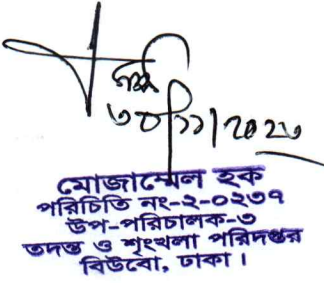 ৩০/১১/২০২৩
মোজাম্মেল হক
পরিচিতি নং-২-০২৩৭
উপ-পরিচালক-৩
তদন্ত ও শৃংখলা পরিদপ্তর
বিউবো, ঢাকা।